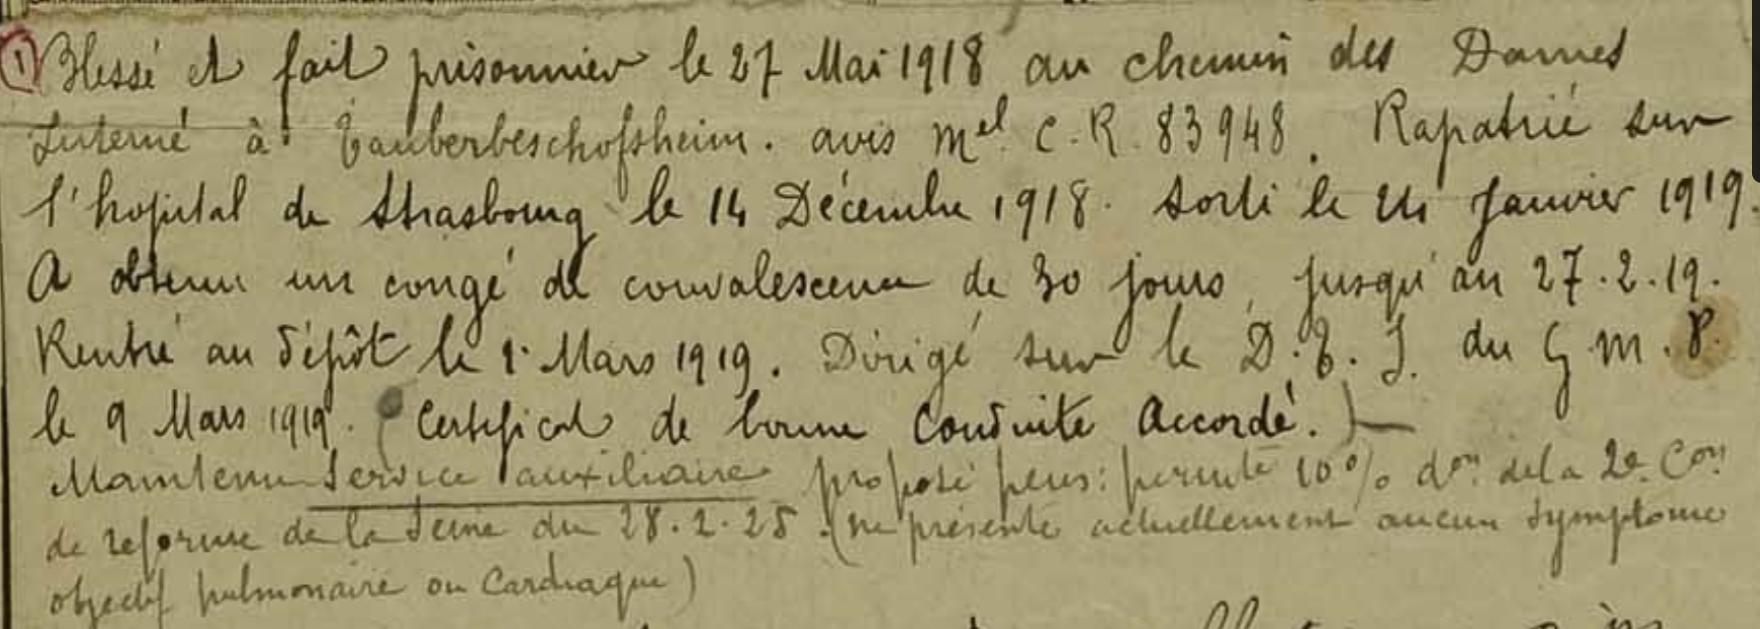 ① Blessé et fait prisonnier le 27 Mai 1918 au chemin des Dames
Interné à Tauberbeschofsheim. avis Mel C.R. 83948. Rapatrié sur
l'hopital de Strasbourg le 14 Décembre 1918. Sorti le 24 Janvier 1919.
A obtenu un congé de convalescence de 30 jours, jusqu'au 27.2.19.
Rentré au dépôt le 1 Mars 1919. Dirigé sur le D.T.I. du G.M.P.
le 9 Mars 1919. (Certificat de bonne Conduite Accordé.)
Maintenu Service auxiliaire proposé pens: permte 10% don de la 2e Con
de reforme de la Seine du 28.2.25. (ne présente actuellement aucun symptome
objectif pulmonaire ou Cardiaque)